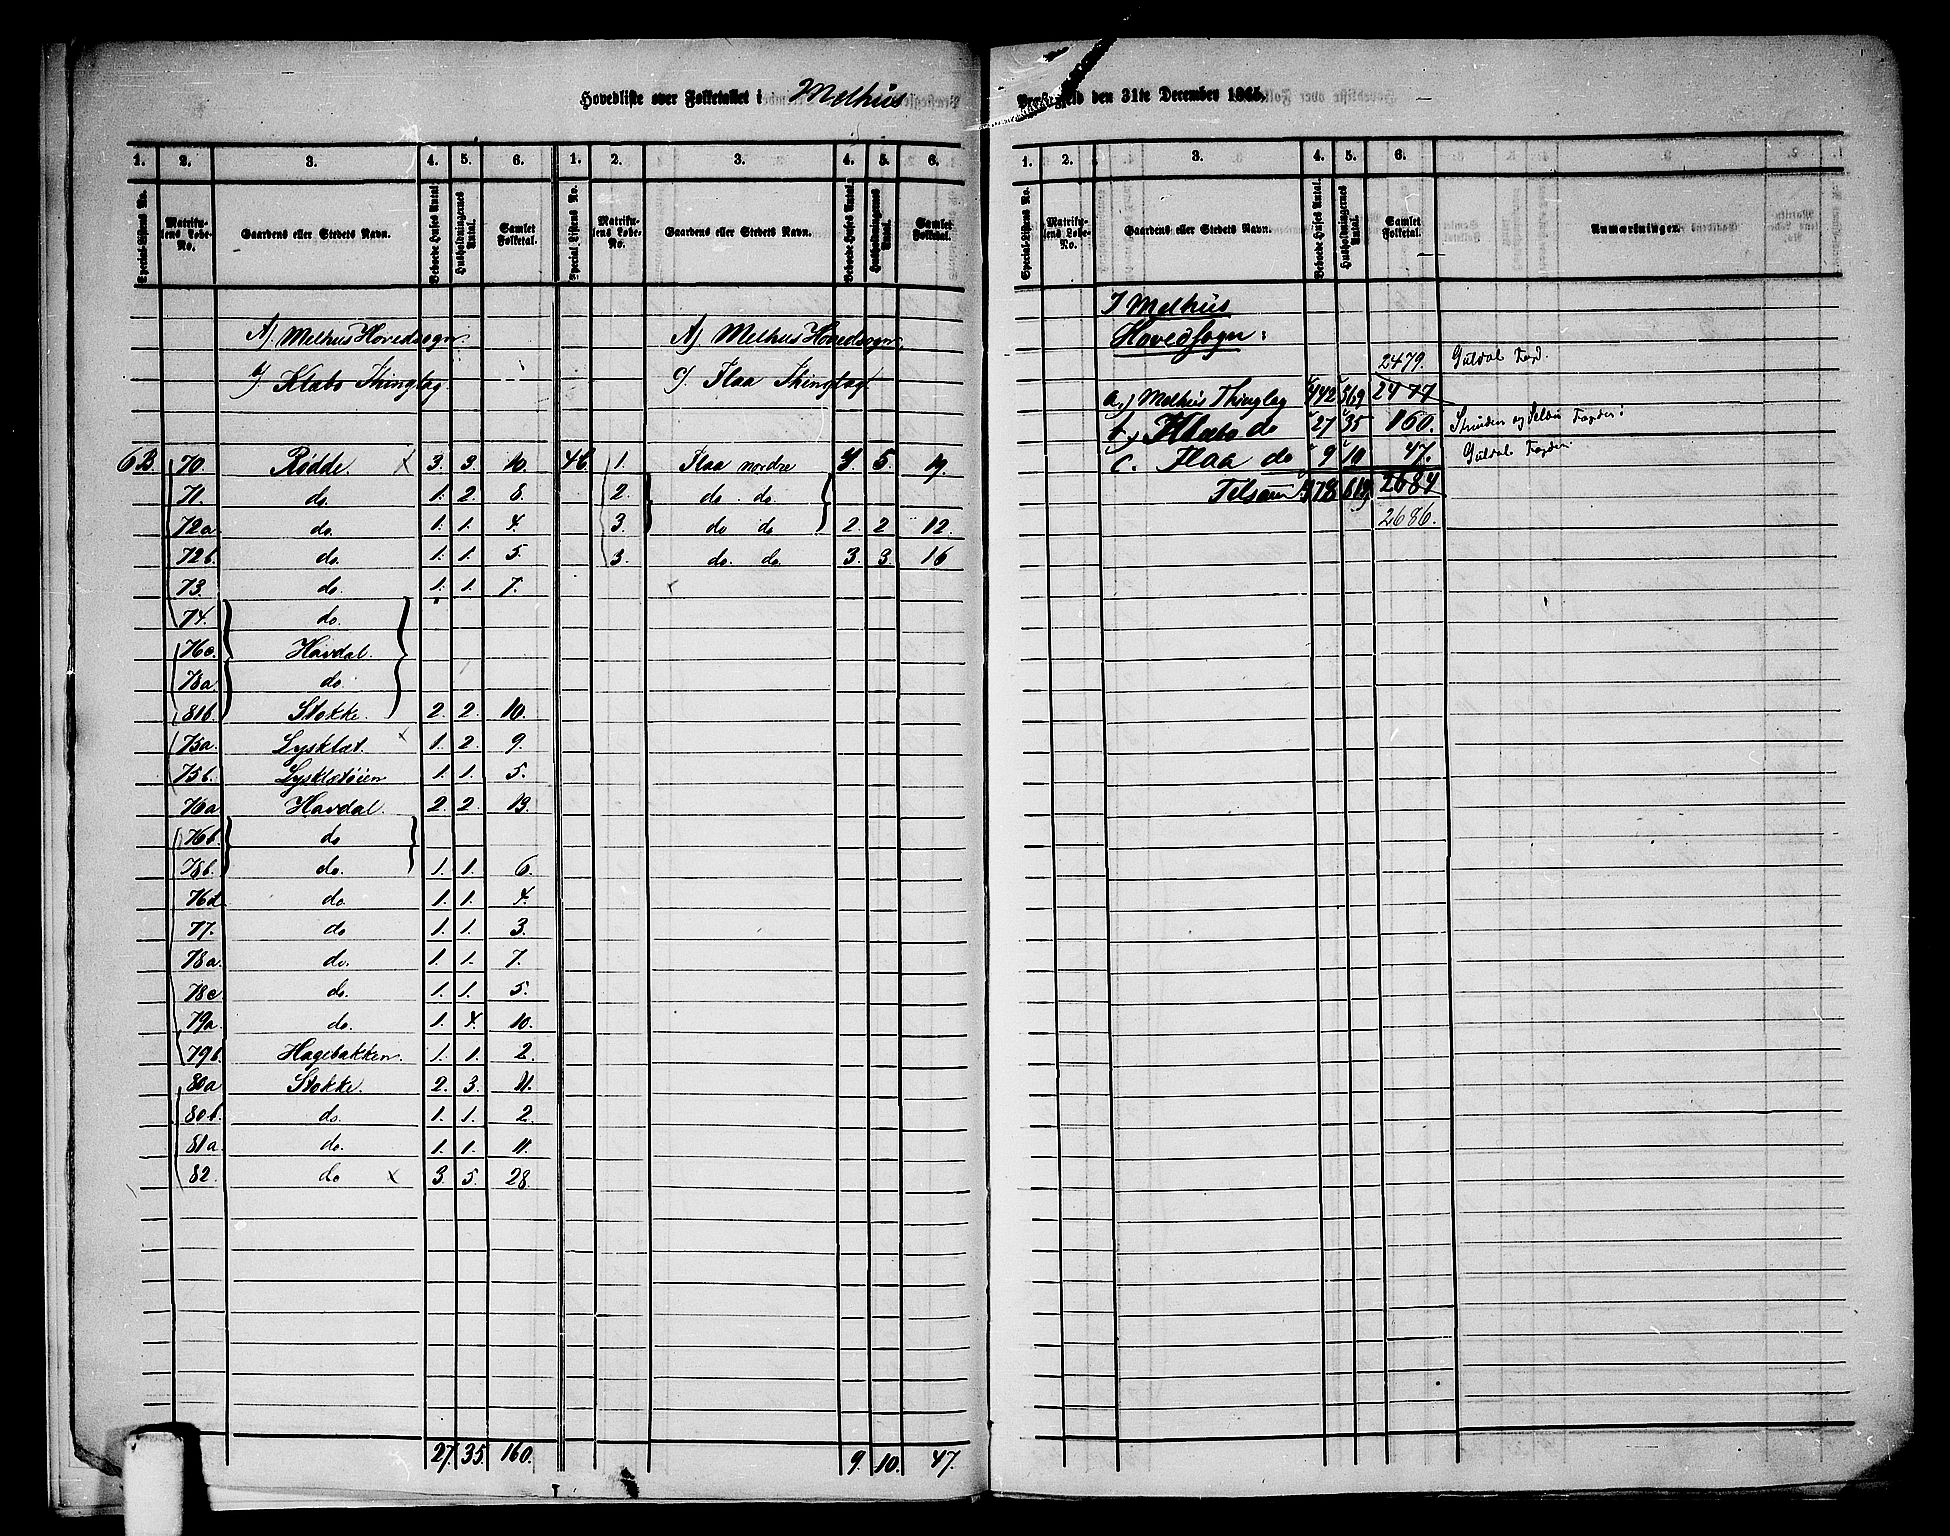 Hovedliste over Folketallet i Melhus
1. 2. 3. 4. 5. 6. 1. 2. 3. 4. 5. 6.
Special-Listens No. Matrikulens Løbe-No. Gaardens eller Stedets Navn. Beboede Huses Antal. Husholdningernes Antal. Samlet Folketal. Special-Listens No. Matrikulens Løbe-No. Gaardens eller Stedets Navn. Beboede Huses Antal. Husholdningernes Antal. Samlet Folketal.
A) Melhus Hovedsogn. A) Melhus Hovedsogn.
Klæbo Thinglag. Flaa Thinglag.
6B. 70. Rødde. x 3. 3. 10. 4b. 1. Flaa nordre 4. 5 19.
71. do. 1. 2 8. 2. do. do.
72a do. 1. 1. 4. 3. do do 2. 2 12.
72b. do. 1. 1. 5. 3. do. do. 3. 3. 16
73. do. 1. 1. 7. x
74. do.
76c. Havdal.
78a do.
81b. Stokke. 2. 2. 10.
75a. Lysklæt. x 1. 2. 9.
75b. Lysklætøien 1. 1. 5.
76a Havdal. 2. 2. 13.
76b. do
78b. do. 1. 1. 6.
76d do. 1. 1. 4.
77. do 1. 1. 3.
78a. do. 1. 1. 7.
78c do. 1. 1. 5.
79a. do. 1. 4. 10.
79b. Hagebakken. 1. 1. 2.
80a Stokke. 2. 3. 11.
80b. do. 1. 1. 2.
81a do. 1. 1. 11.
82. do x 3. 5. 28.
27. 35. 160. 9. 10. 47.
Præstegjeld den 31te December 1865.
1. 2. 3. 4. 5. 6.
Special-Listens No. Matrikulens Løbe-No. Gaardens eller Stedets Navn. Beboede Huses Antal. Husholdningernes Antal. Samlet Folketal. Anmærkninger.
I Melhus
Hovedsogn:
2479. Guldal Fogd.
a.) Melhus Thinglag 442 569 2477
b.) Klæbo do 27 35 160. Strinden og Selbu Fogderi
c. Flaa do 9 10 47. Guldals Fogderi
Tilsam 478 619 2684
2686.